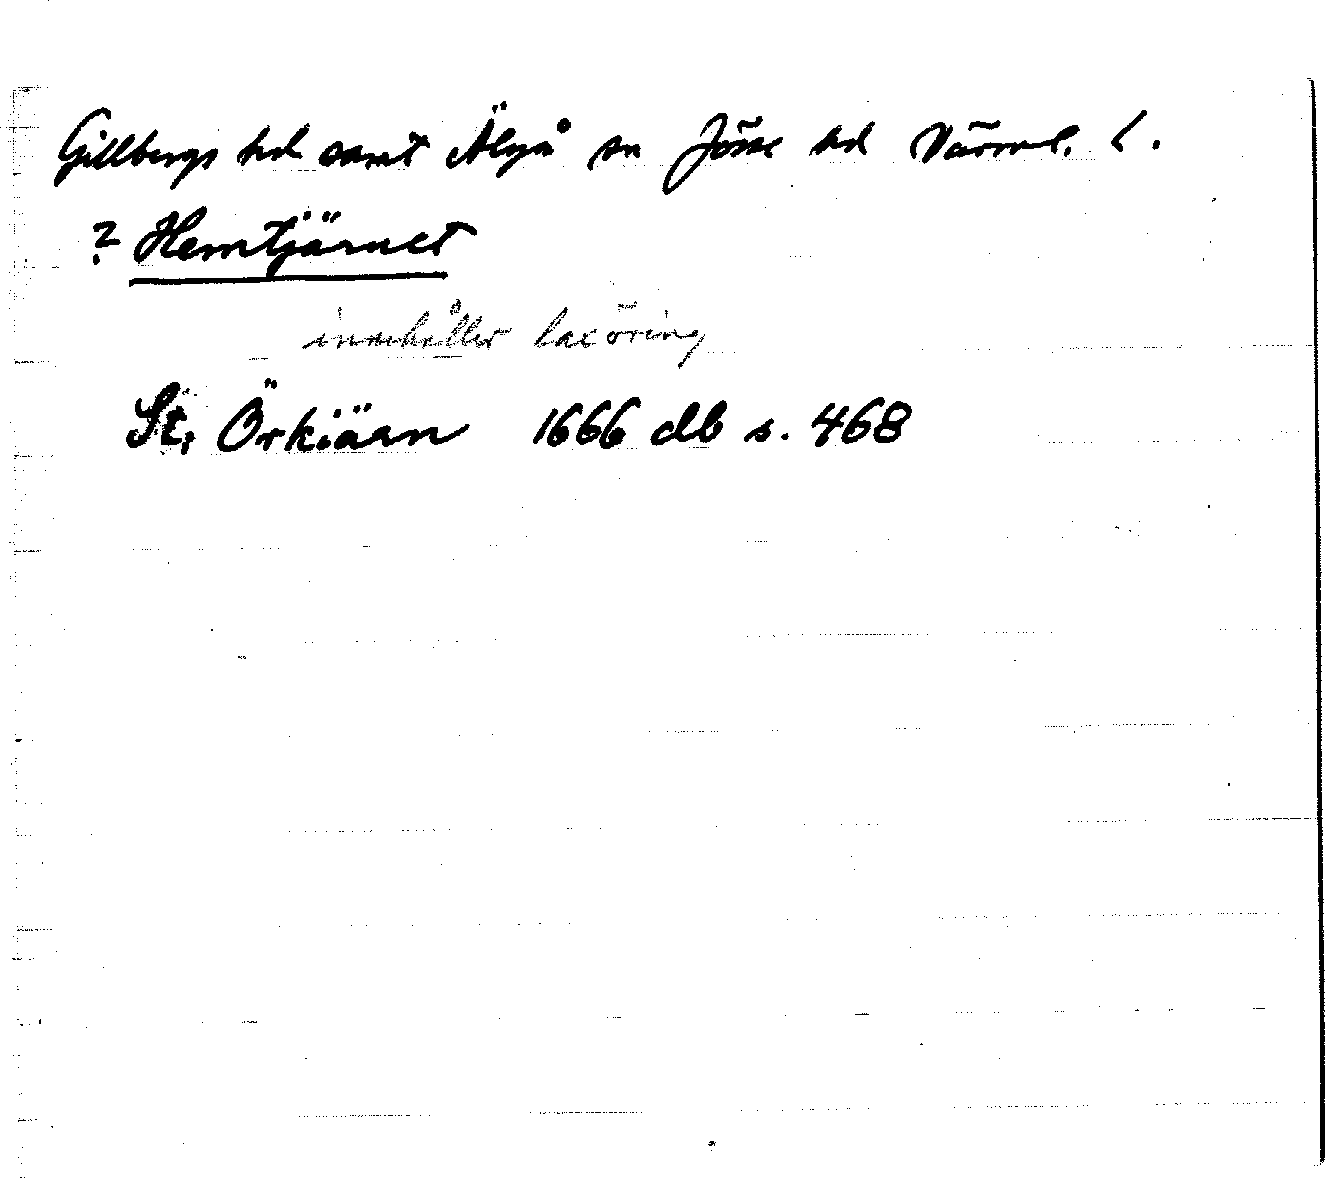 Gillbergs hd samt Älgå sn Jösse hd Värml. l.
? Hemtjärnet
innehåller laxöring
St. Örkiäan 1666 db s. 468